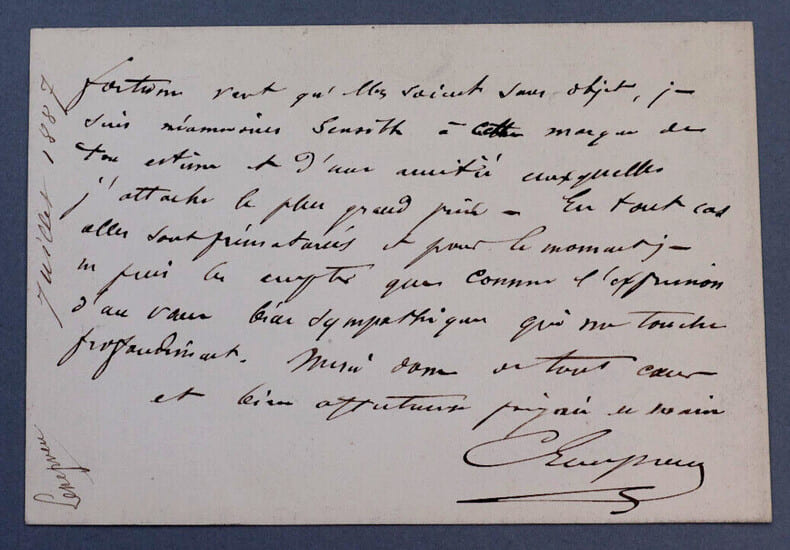 fortune veut qu'elles soient sans objet, je
suis néanmoins sensible à cette marque de
ton estime et d'une amitié auxquelles
j'attache le plus grand prix – En tout cas
elles sont prématurées et pour le moment je
ne puis les accepter que comme l'expression
d'un vœu bien sympathique qui me touche
profondément. Merci donc de tout cœur
et bien affectueuse poignée de main
CLenepveu
Juillet 1887
Lenepveu